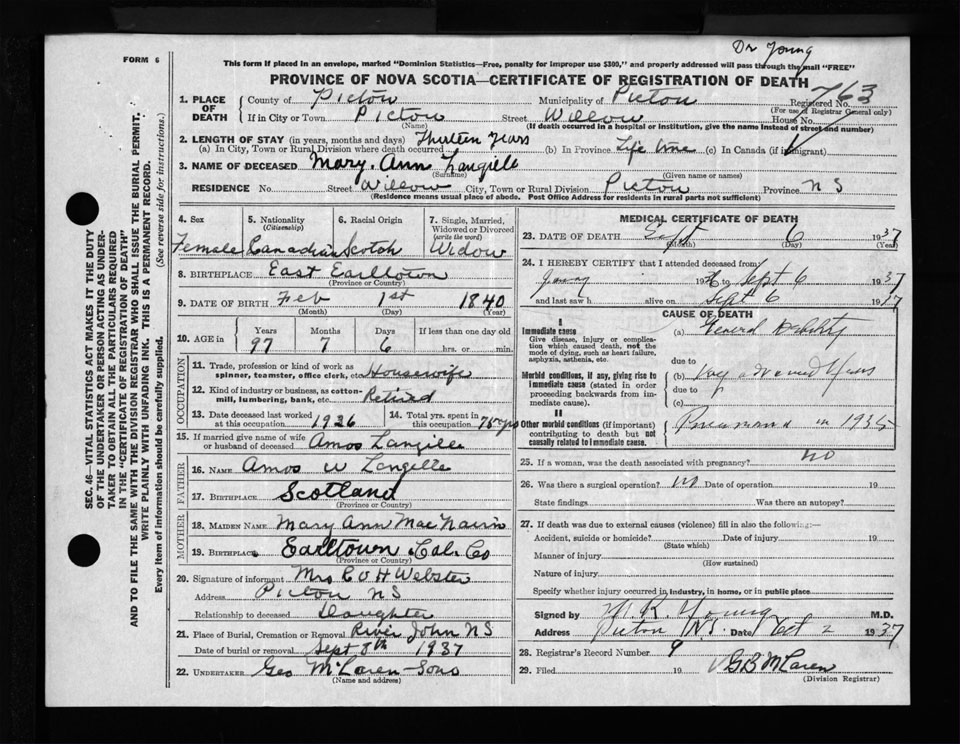 Dr Young
FORM 6
This form if placed in an envelope, marked "Dominion Statistics—Free, penalty for improper use $300," and properly addressed will pass through the mail "FREE"
PROVINCE OF NOVA SCOTIA—CERTIFICATE OF REGISTRATION OF DEATH
763
Registered No.
(For use of Registrar General only)
1. PLACE OF DEATH
County of Pictou Municipality of Pictou
If in City or Town Pictou Street Willow House No.
(Name) (If death occurred in a hospital or institution, give the name instead of street and number)
2. LENGTH OF STAY (in years, months and days)
(a) In City, Town or Rural Division where death occurred Thirteen Years (b) In Province Life time (c) In Canada (if immigrant)
3. NAME OF DECEASED Mary Ann Langille
(Surname) (Given name or names)
RESIDENCE No. Street Willow City, Town or Rural Division Pictou Province N S
(Residence means usual place of abode. Post Office Address for residents in rural parts not sufficient)
4. Sex
Female
5. Nationality
(Citizenship)
Canadian
6. Racial Origin
Scotch
7. Single, Married, Widowed or Divorced
(write the word)
Widow
8. BIRTHPLACE East Earltown
(Province or Country)
9. DATE OF BIRTH Feb 1st 1840
(Month) (Day) (Year)
10. AGE in
Years Months Days If less than one day old
97 7 6 hrs. or min.
OCCUPATION
11. Trade, profession or kind of work as spinner, teamster, office clerk, etc. Housewife
12. Kind of industry or business, as cotton-mill, lumbering, bank, etc. Retired
13. Date deceased last worked at this occupation 1926
14. Total yrs. spent in this occupation 75 yrs
15. If married give name of wife or husband of deceased Amos Langille
FATHER
16. NAME Amos W Langille
17. BIRTHPLACE Scotland
(Province or Country)
MOTHER
18. MAIDEN NAME Mary Ann MacNairn
19. BIRTHPLACE Earltown Col. Co
(Province or Country)
20. Signature of informant Mrs C O H Webster
Address Pictou N S
Relationship to deceased Daughter
21. Place of Burial, Cremation or Removal River John N S
Date of burial or removal Sept 8th 1937
22. UNDERTAKER Geo McLaren Sons
(Name and address)
MEDICAL CERTIFICATE OF DEATH
23. DATE OF DEATH Sept 6 1937
(Month) (Day) (Year)
24. I HEREBY CERTIFY that I attended deceased from:
Sept 6 1937
and last saw h alive on Sept 6 19
CAUSE OF DEATH
I
Immediate cause
Give disease, injury or complication which caused death, not the mode of dying, such as heart failure, asphyxia, asthenia, etc.
(a) General Debility
due to
Morbid conditions, if any, giving rise to immediate cause (stated in order proceeding backwards from immediate cause).
(b) Very advanced Years
due to
(c)
II
Other morbid conditions (if important) contributing to death but not causally related to immediate cause.
Pneumonia in 1935
25. If a woman, was the death associated with pregnancy? NO
26. Was there a surgical operation? NO Date of operation 19
State findings Was there an autopsy?
27. If death was due to external causes (violence) fill in also the following:—
Accident, suicide or homicide? Date of injury 19
(State which)
Manner of injury
(How sustained)
Nature of injury
Specify whether injury occurred in industry, in home, or in public place
Signed by H. K. Young M.D.
Address Pictou N.S. Date Oct 2 1937
28. Registrar's Record Number 9
29. Filed 19 G B McLaren
(Division Registrar)
SEC. 46—VITAL STATISTICS ACT MAKES IT THE DUTY
OF THE UNDERTAKER OR PERSON ACTING AS UNDER-
TAKER TO OBTAIN ALL THE PARTICULARS REQUIRED
IN THE "CERTIFICATE OF REGISTRATION OF DEATH"
AND TO FILE THE SAME WITH THE DIVISION REGISTRAR WHO SHALL ISSUE THE BURIAL PERMIT.
WRITE PLAINLY WITH UNFADING INK. THIS IS A PERMANENT RECORD.
Every item of information should be carefully supplied. (See reverse side for instructions.)